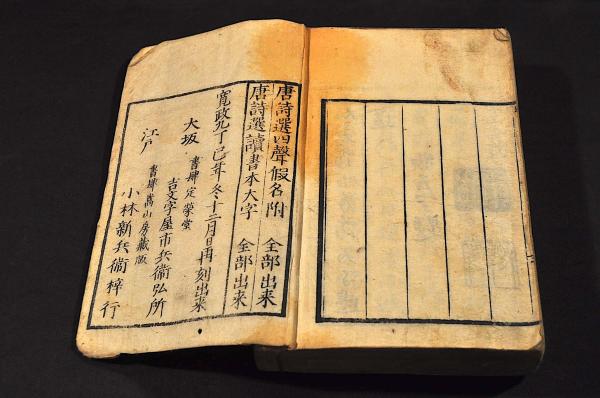 唐詩選四聲假名附 全部出来
唐詩選讀書本大字 全部出来
寛政九丁巳年冬十二月日再刻出来
大坂 書肆 定榮堂
吉文字屋市兵衞弘所
江戸 書肆嵩山房藏版
小林新兵衞梓行